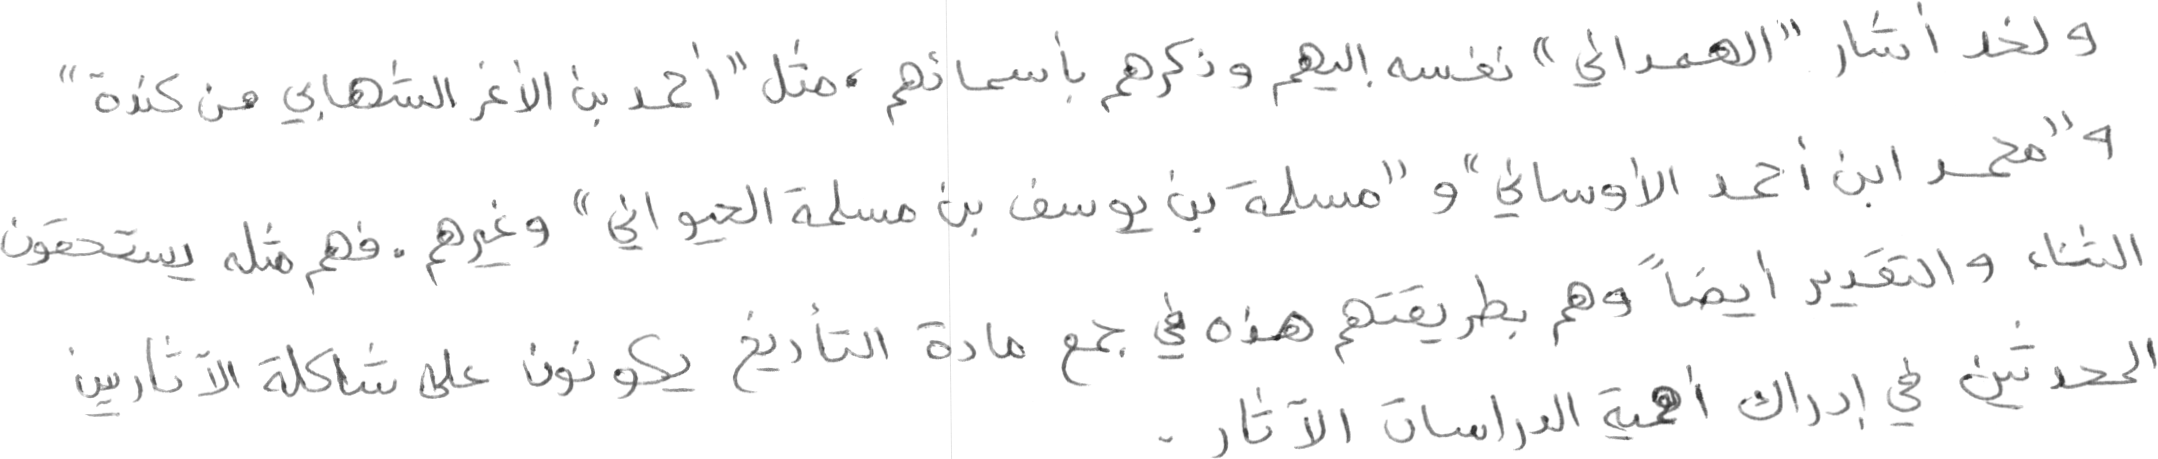 ولغد أشار "الهمداني" نفسه إليهم وذكرهم بأسمائهم، مثل "أحمد بن الأغر الشهابي من كندة"
و"محمد ابن أحمد الأوساني" و "مسلمة بن يوسف بن مسلمة الحيواني" وغيرهم. فهم مثله يستحقون
الثناء والتقدير أيضاً وهم بطريقتهم هذه في جمع مادة التأريخ يكونون على شاكلة الآثاريين
المحدثين في إدراك أهمية الدراسات الآثار.